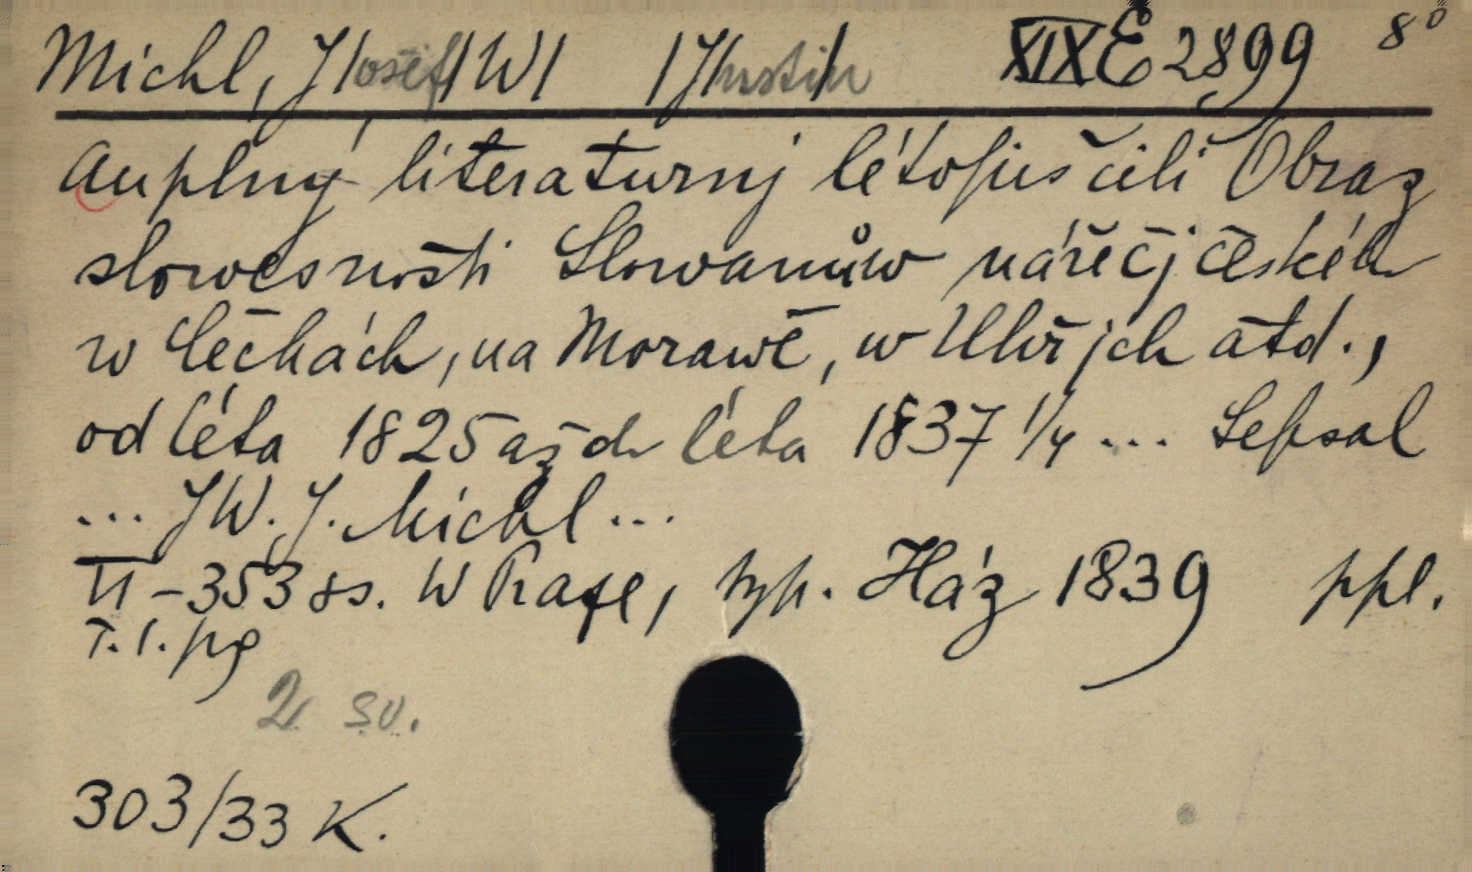 Michl, J/osef/W/ /J/ustin/ XIX E 2899 8°
Auplný literaturnj létopis čili Obraz
slowesnosti Slowanůw nářečj českého
w Čechách, na Morawě, w Uhřjch atd.,
od léta 1825 až do léta 1837 1/4 ... Sepsal
... JW. J. Michl ...
VI – 353 ss. W Praze, typ. Ház 1839 ppl.
T. I. pg
2 sv.
303/33 K.